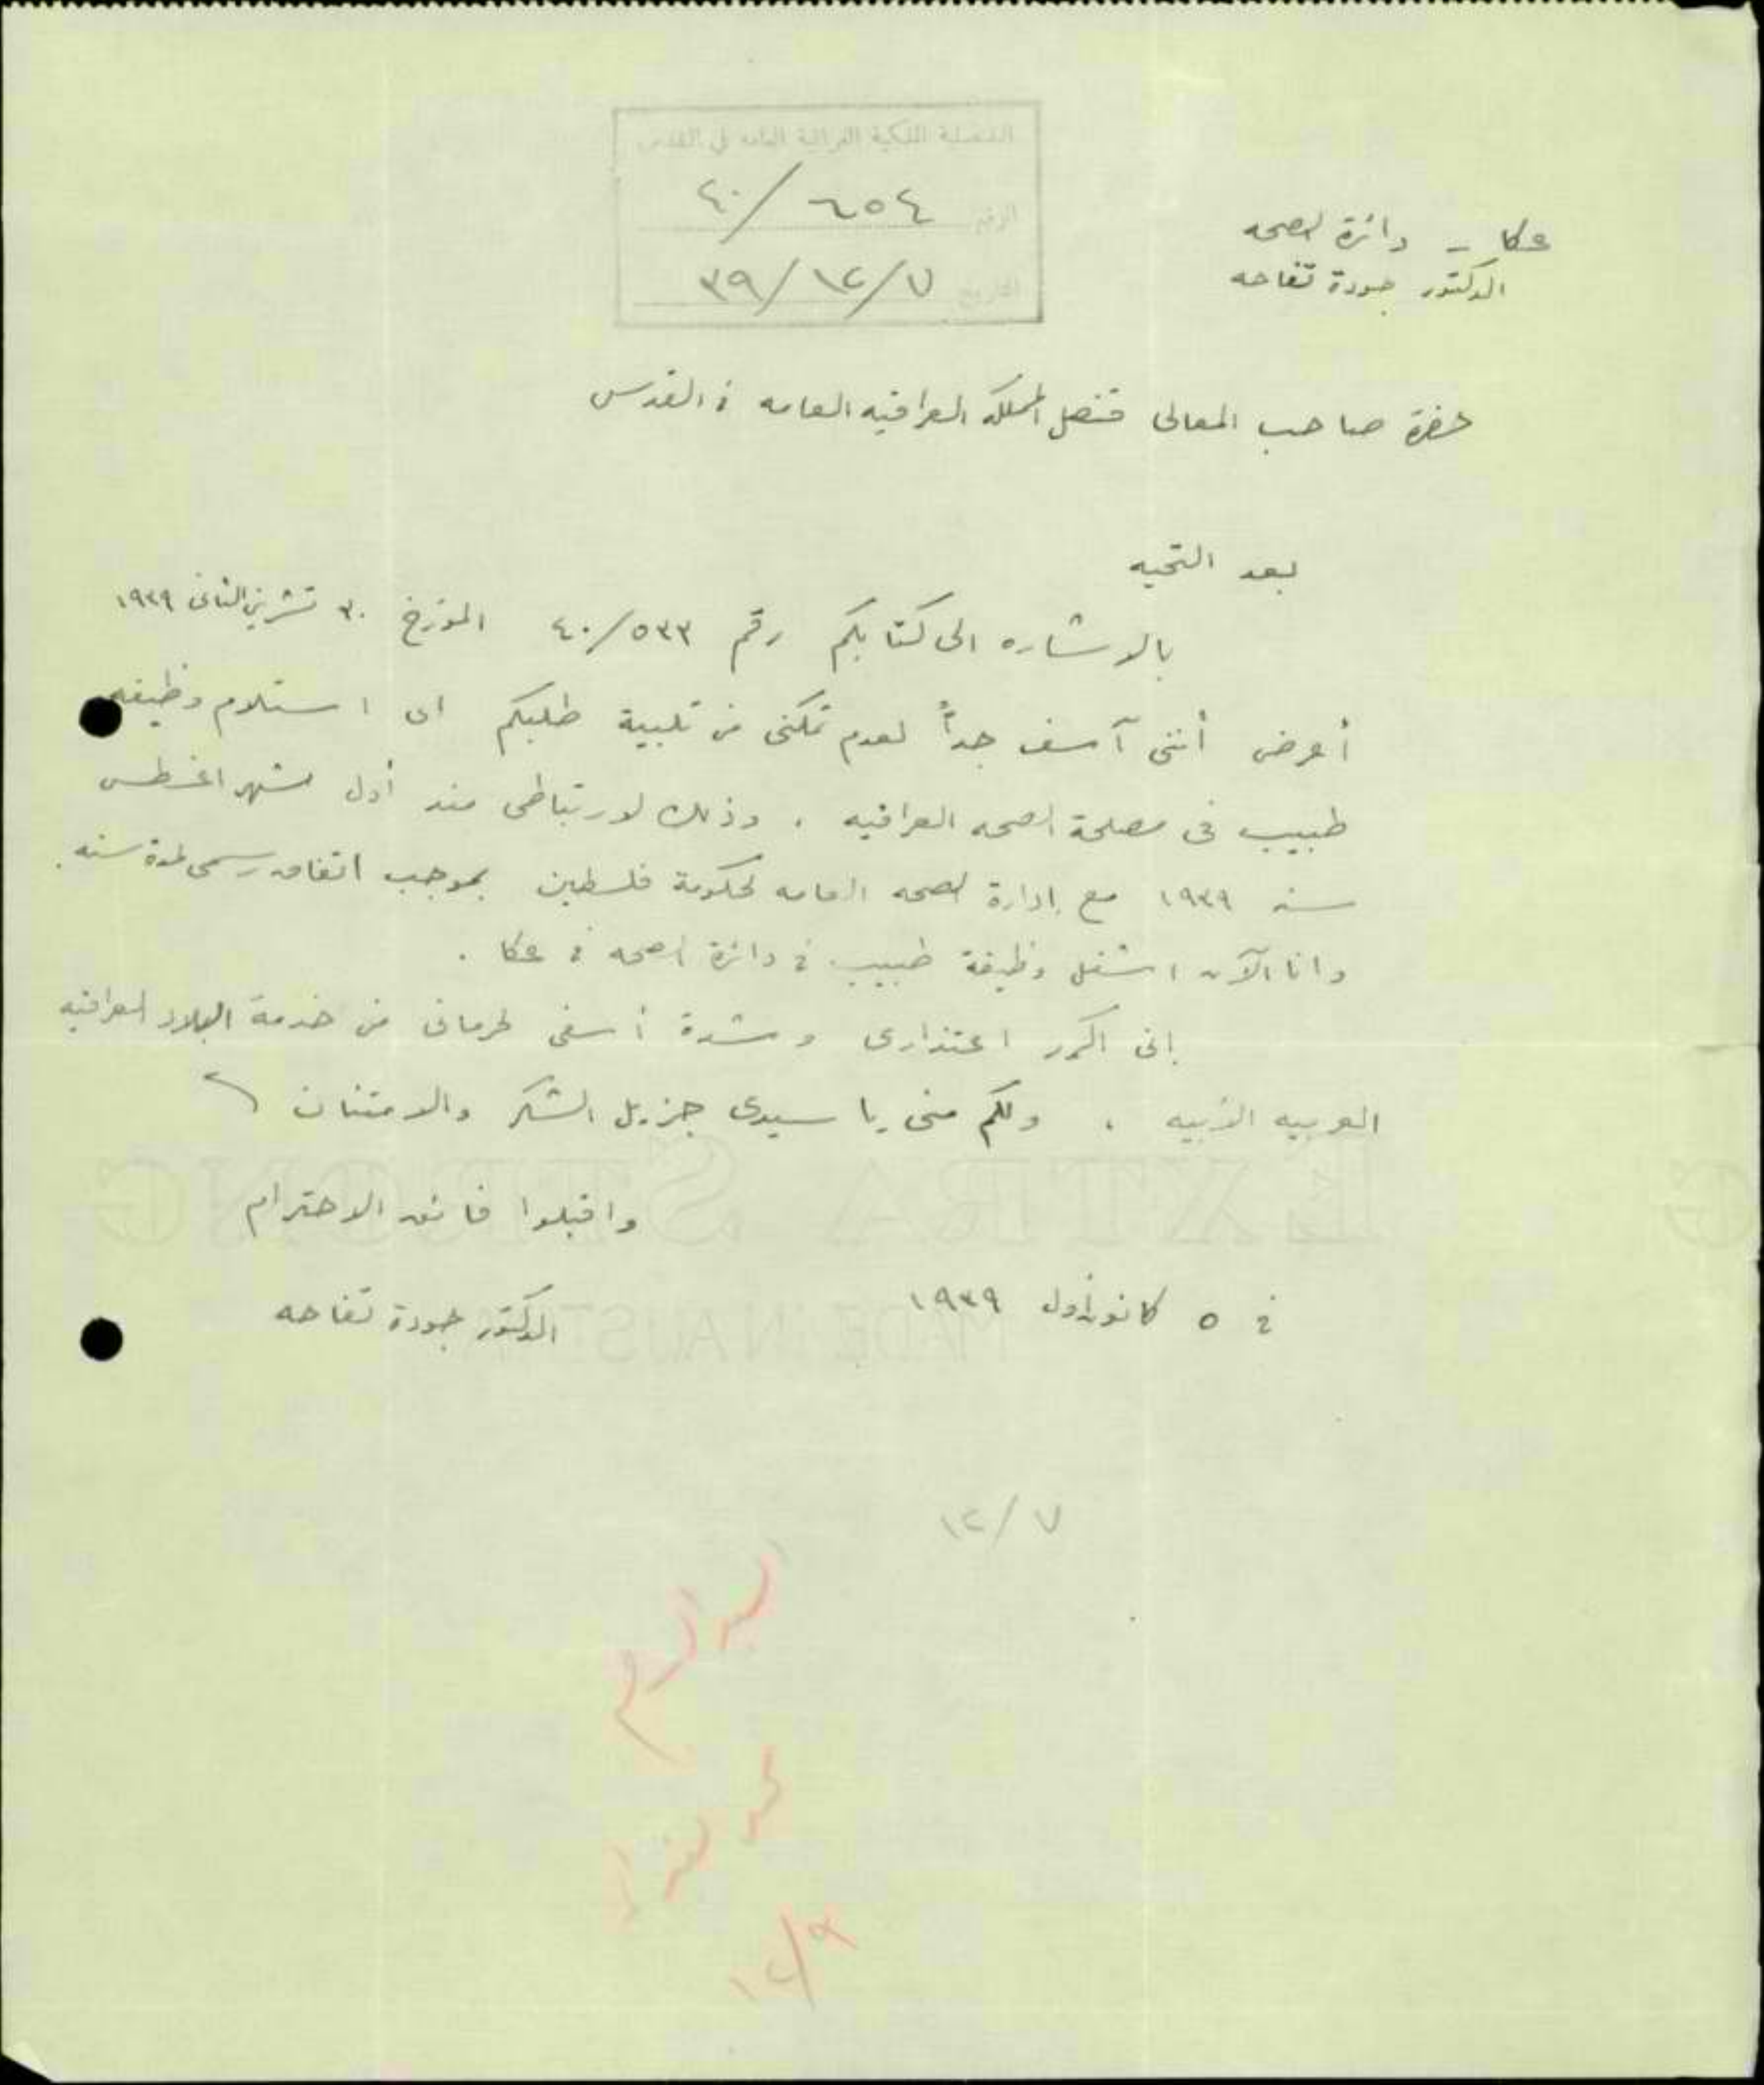 القنصلية الملكية العراقية العامة في القدس
الرقم ٤٠/٦٥٤
التاريخ ٣٩/١٢/٧
عكا - دائرة الصحه
الدكتور جودة تفاحه
حضرة صاحب المعالي قنصل المملكه العراقيه العامه في القدس
بعد التحيه
بالاشاره الى كتابكم رقم ٤٠/٥٣٣ المؤرخ ٣٠ تشرين الثاني ١٩٣٩
أعرض أنني آسف جداً لعدم تمكني من تلبية طلبكم اى استلام وظيفة
طبيب في مصلحة الصحه العراقيه . وذلك لارتباطي منذ أول شهر اغسطس
سنة ١٩٣٩ مع إدارة الصحه العامه لحكومة فلسطين بموجب اتفاق رسمي لمدة سنه .
وانا الآن اشغل وظيفة طبيب في دائرة الصحه في عكا .
إني اكرر اعتذاري وشدة أسفي لحرماني من خدمة البلاد العراقيه
العربيه الأبيه . ولكم مني يا سيدي جزيل الشكر والامتنان
واقبلوا فائق الاحترام
في ٥ كانون أول ١٩٣٩
الدكتور جودة تفاحه
١٢/٧
١٢/٩
EXTRA STRONG
MADE IN AUSTRIA